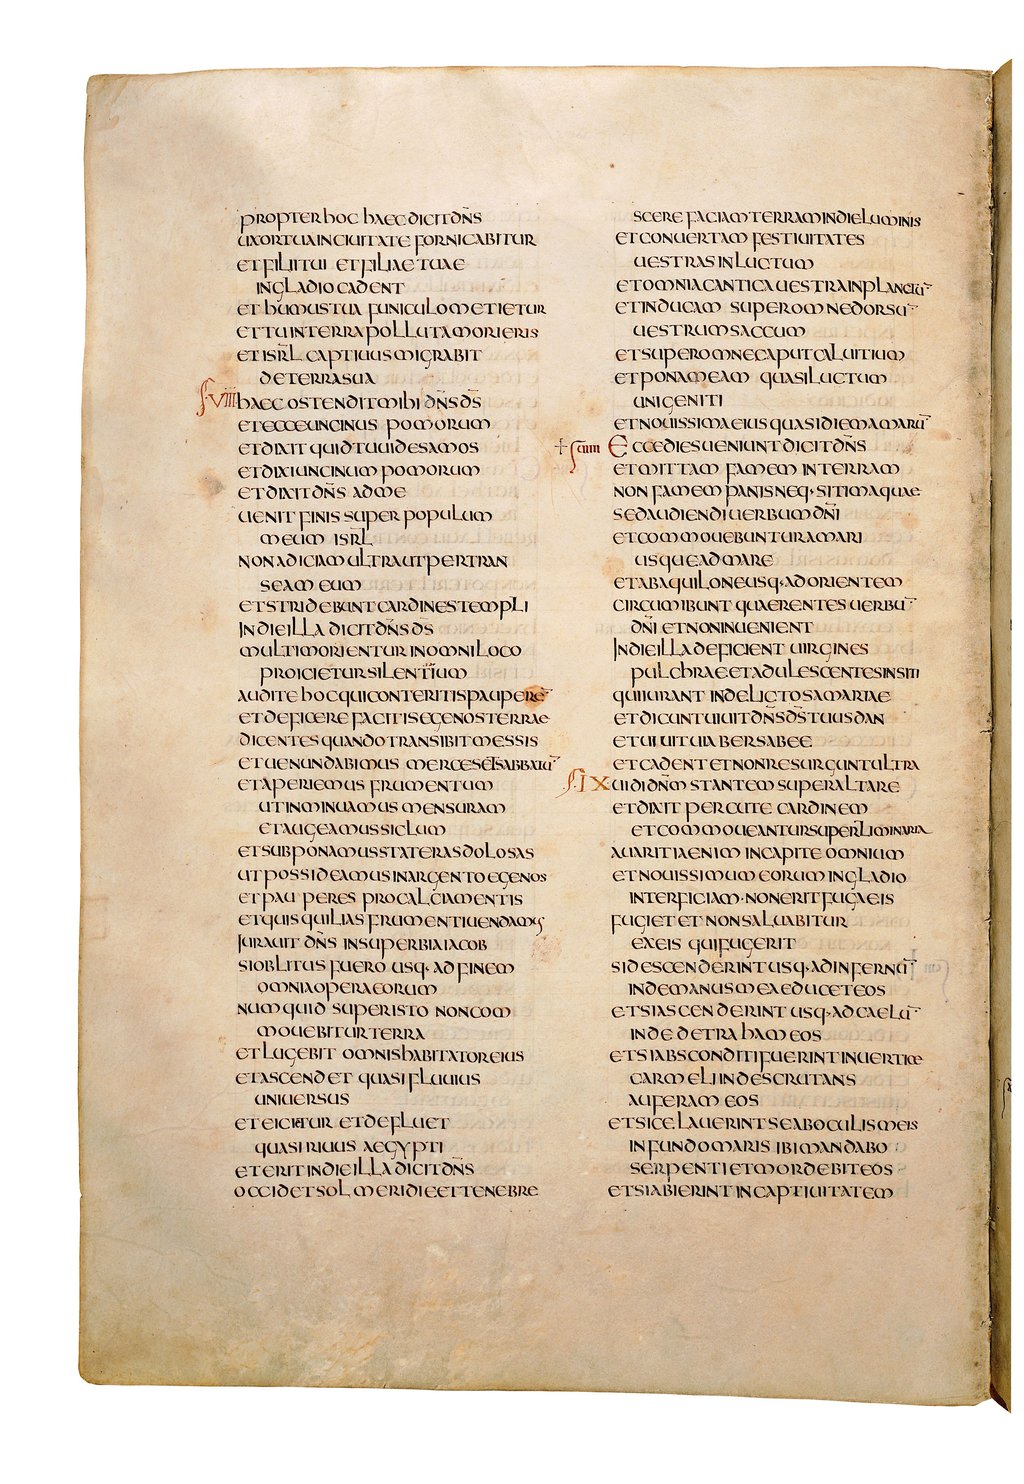 PROPTER HOC HAEC DICIT DN̄S
UXOR TUA IN CIUITATE FORNICABITUR
ET FILII TUI ET FILIAE TUAE
IN GLADIO CADENT
ET HUMUS TUA FUNICULO METIETUR
ET TU IN TERRA POLLUTA MORIERIS
ET ISRL̄ CAPTIUUS MIGRABIT
DE TERRA SUA
VIII HAEC OSTENDIT MIHI DN̄S DS̄
ET ECCE UNCINUS POMORUM
ET DIXIT QUID TU UIDES AMOS
ET DIXI UNCINUM POMORUM
ET DIXIT DN̄S AD ME
UENIT FINIS SUPER POPULUM
MEUM ISRL̄
NON ADICIAM ULTRA UT PERTRAN
SEAM EUM
ET STRIDEBUNT CARDINES TEMPLI
IN DIE ILLA DICIT DN̄S DS̄
MULTI MORIENTUR IN OMNI LOCO
PROICIETUR SILENTIUM
AUDITE HOC QUI CONTERITIS PAUPERĒ
ET DEFICERE FACITIS EGENOS TERRAE
DICENTES QUANDO TRANSIBIT MESSIS
ET UENUNDABIMUS MERCES ET SABBATŪ
ET APERIEMUS FRUMENTUM
UT INMINUAMUS MENSURAM
ET AUGEAMUS SICLUM
ET SUBPONAMUS STATERAS DOLOSAS
UT POSSIDEAMUS IN ARGENTO EGENOS
ET PAUPERES PRO CALCIAMENTIS
ET QUISQUILIAS FRUMENTI UENDAMUS
IURAUIT DN̄S IN SUPERBIA IACOB
SI OBLITUS FUERO USQ· AD FINEM
OMNIA OPERA EORUM
NUMQUID SUPER ISTO NON COM
MOUEBITUR TERRA
ET LUGEBIT OMNIS HABITATOR EIUS
ET ASCENDET QUASI FLUUIUS
UNIUERSUS
ET EICIETUR ET DEFLUET
QUASI RIUUS AEGYPTI
ET ERIT IN DIE ILLA DICIT DN̄S
OCCIDET SOL MERIDIE ET TENEBRE
SCERE FACIAM TERRAM IN DIE LUMINIS
ET CONUERTAM FESTIUITATES
UESTRAS IN LUCTUM
ET OMNIA CANTICA UESTRA IN PLANCTŪ
ET INDUCAM SUPER OMNE DORSŪ
UESTRUM SACCUM
ET SUPER OMNE CAPUT CALUITIUM
ET PONAM EAM QUASI LUCTUM
UNIGENITI
ET NOUISSIMA EIUS QUASI DIEM AMARŪ
ECCE DIES UENIUNT DICIT DN̄S
ET MITTAM FAMEM IN TERRAM
NON FAMEM PANIS NEQ· SITIM AQUAE
SED AUDIENDI UERBUM DN̄I
ET COMMOUEBUNTUR A MARI
USQUE AD MARE
ET AB AQUILONE USQ· AD ORIENTEM
CIRCUMIBUNT QUAERENTES UERBŪ
DN̄I ET NON INUENIENT
IN DIE ILLA DEFICIENT UIRGINES
PULCHRAE ET ADULESCENTES IN SITI
QUI IURANT IN DELICTO SAMARIAE
ET DICUNT UIUIT DN̄S DS̄ TUUS DAN
ET UIUIT UIA BERSABEE
ET CADENT ET NON RESURGUNT ULTRA
IX UIDI DN̄M STANTEM SUPER ALTARE
ET DIXIT PERCUTE CARDINEM
ET COMMOUEANTUR SUPERLIMINARIA
AUARITIA ENIM IN CAPITE OMNIUM
ET NOUISSIMUM EORUM IN GLADIO
INTERFICIAM· NON ERIT FUGA EIS
FUGIET ET NON SALUABITUR
EX EIS QUI FUGERIT
SI DESCENDERINT USQ· AD INFERNŪ
INDE MANUS MEA EDUCET EOS
ET SI ASCENDERINT USQ· AD CAELŪ
INDE DETRAHAM EOS
ET SI ABSCONDITI FUERINT IN UERTICE
CARMELI INDE SCRUTANS
AUFERAM EOS
ET SI CELAUERINT SE AB OCULIS MEIS
IN FUNDO MARIS IBI MANDABO
SERPENTI ET MORDEBIT EOS
ET SI ABIERINT IN CAPTIUITATEM